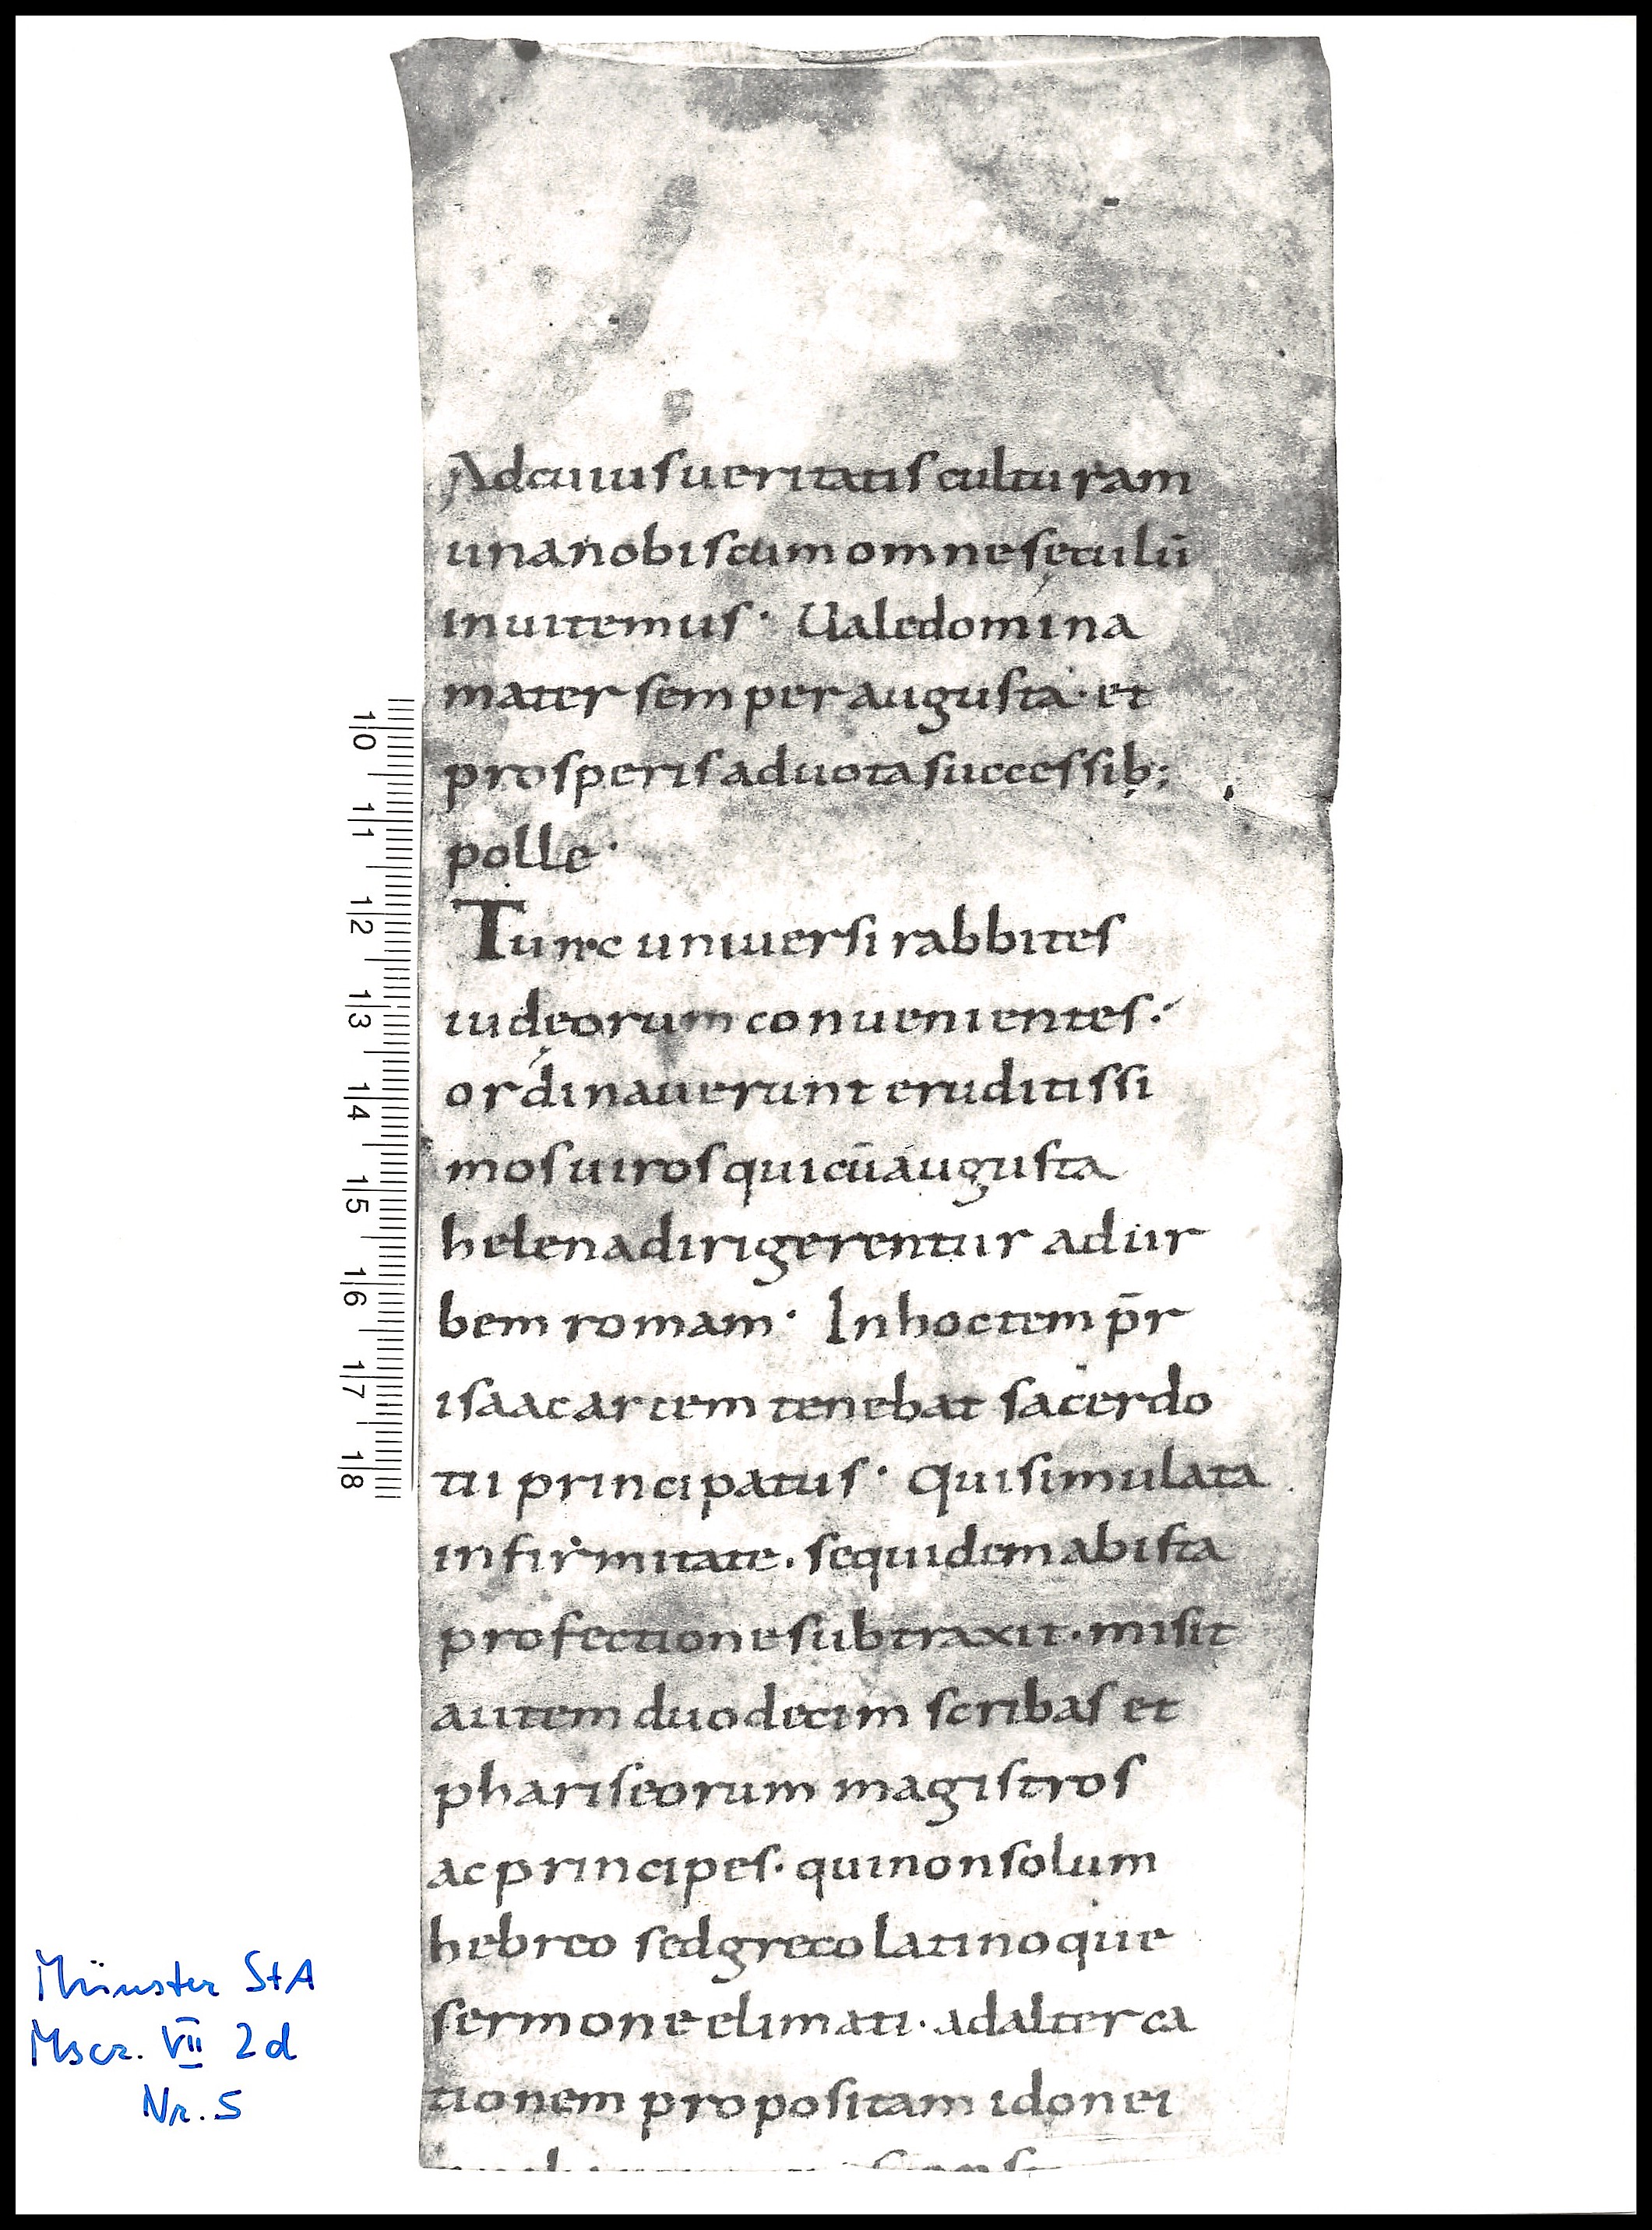 Ad cuius ueritatis culturam
una nobiscum omne sęculū
inuitemus· Uale domina
mater semper augusta· et
prosperis aduota successib;
polle·
Tunc uniuersi rabbites
iudęorum conuenientes·
ordinauerunt eruditissi
mos uiros qui cū augusta
helena dirigerentur ad ur
bem romam· In hoc temp̄r
isaac arcem tenebat sacerdo
tii principatus· Qui simulata
infirmitate· se quidem ab ista
profectione subtraxit· misit
autem duodecim scribas et
phariseorum magistros
ac principes· qui non solum
hebreo sed greco latinoque
sermone elimati· ad alterca
tionem propositam idonei
10
11
12
13
14
15
16
17
18
Münster StA
Mscr. VII 2d
Nr. 5